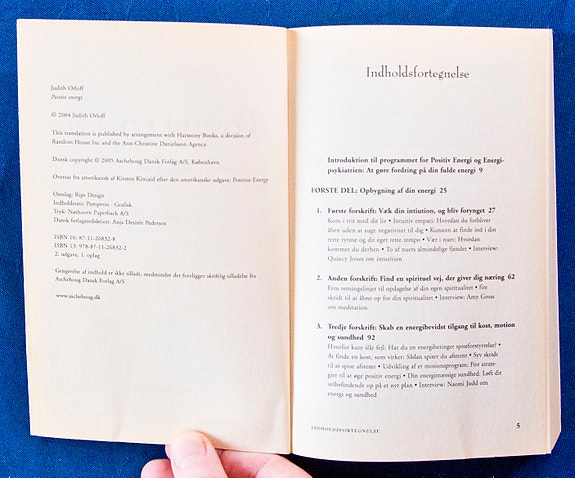 Judith Orloff
Positive energi
© 2004 Judith Orloff
This translation is published by arrangement with Harmony Books, a division of
Random House Inc and the Ann-Christine Danielsson Agency.
Dansk copyright © 2005 Aschehoug Dansk Forlag A/S, København
Oversat fra amerikansk af Kirsten Kincaid efter den amerikanske udgave: Positive Energy
Omslag: Rips Design
Indholdssats: Pamperin - Grafisk
Tryk: Nørhaven Paperback A/S
Dansk forlagsredaktion: Anja Desirée Pedersen
ISBN 10: 87-11-26832-8
ISBN 13: 978-87-11-26832-2
2. udgave, 1. oplag
Gengivelse af indhold er ikke tilladt, medmindre der foreligger skriftlig tilladelse fra
Aschehoug Dansk Forlag A/S.
www.aschehoug.dk
Indholdsfortegnelse
Introduktion til programmet for Positiv Energi og Energi-
psykiatrien: At gøre fordring på din fulde energi 9
FØRSTE DEL: Opbygning af din energi 25
1. Første forskrift: Væk din intiution, og bliv forynget 27
Kom i trit med dit liv • Intuitiv empati: Hvordan du forbliver
åben uden at suge negativitet til dig • Kunsten at finde ind i din
rette rytme og dit eget rette tempo • Vær i nuet: Hvordan
kommer du derhen • To af nuets almindelige fjender • Interview:
Quincy Jones om intuition
2. Anden forskrift: Find en spirituel vej, der giver dig næring 62
Fem retningslinjer til opdagelse af din egen spiritualitet • fire
skridt til at åbne op for din spiritualitet • Interview: Amy Gross
om meditation
3. Tredje forskrift: Skab en energibevidst tilgang til kost, motion
og sundhed 92
Hvorfor kure slår fejl: Har du en energibetinget spiseforstyrrelse? •
At finde en kost, som virker: Sådan spiser du afstemt • Syv skridt
til at spise afstemt • Udvikling af et motionsprogram: Fire strate-
gier til at øge positiv energi • Din energimæssige sundhed: Løft dit
velbefindende op på et nyt plan • Interview: Naomi Judd om
energi og sundhed
INDHOLDSFORTEGNELSE 5